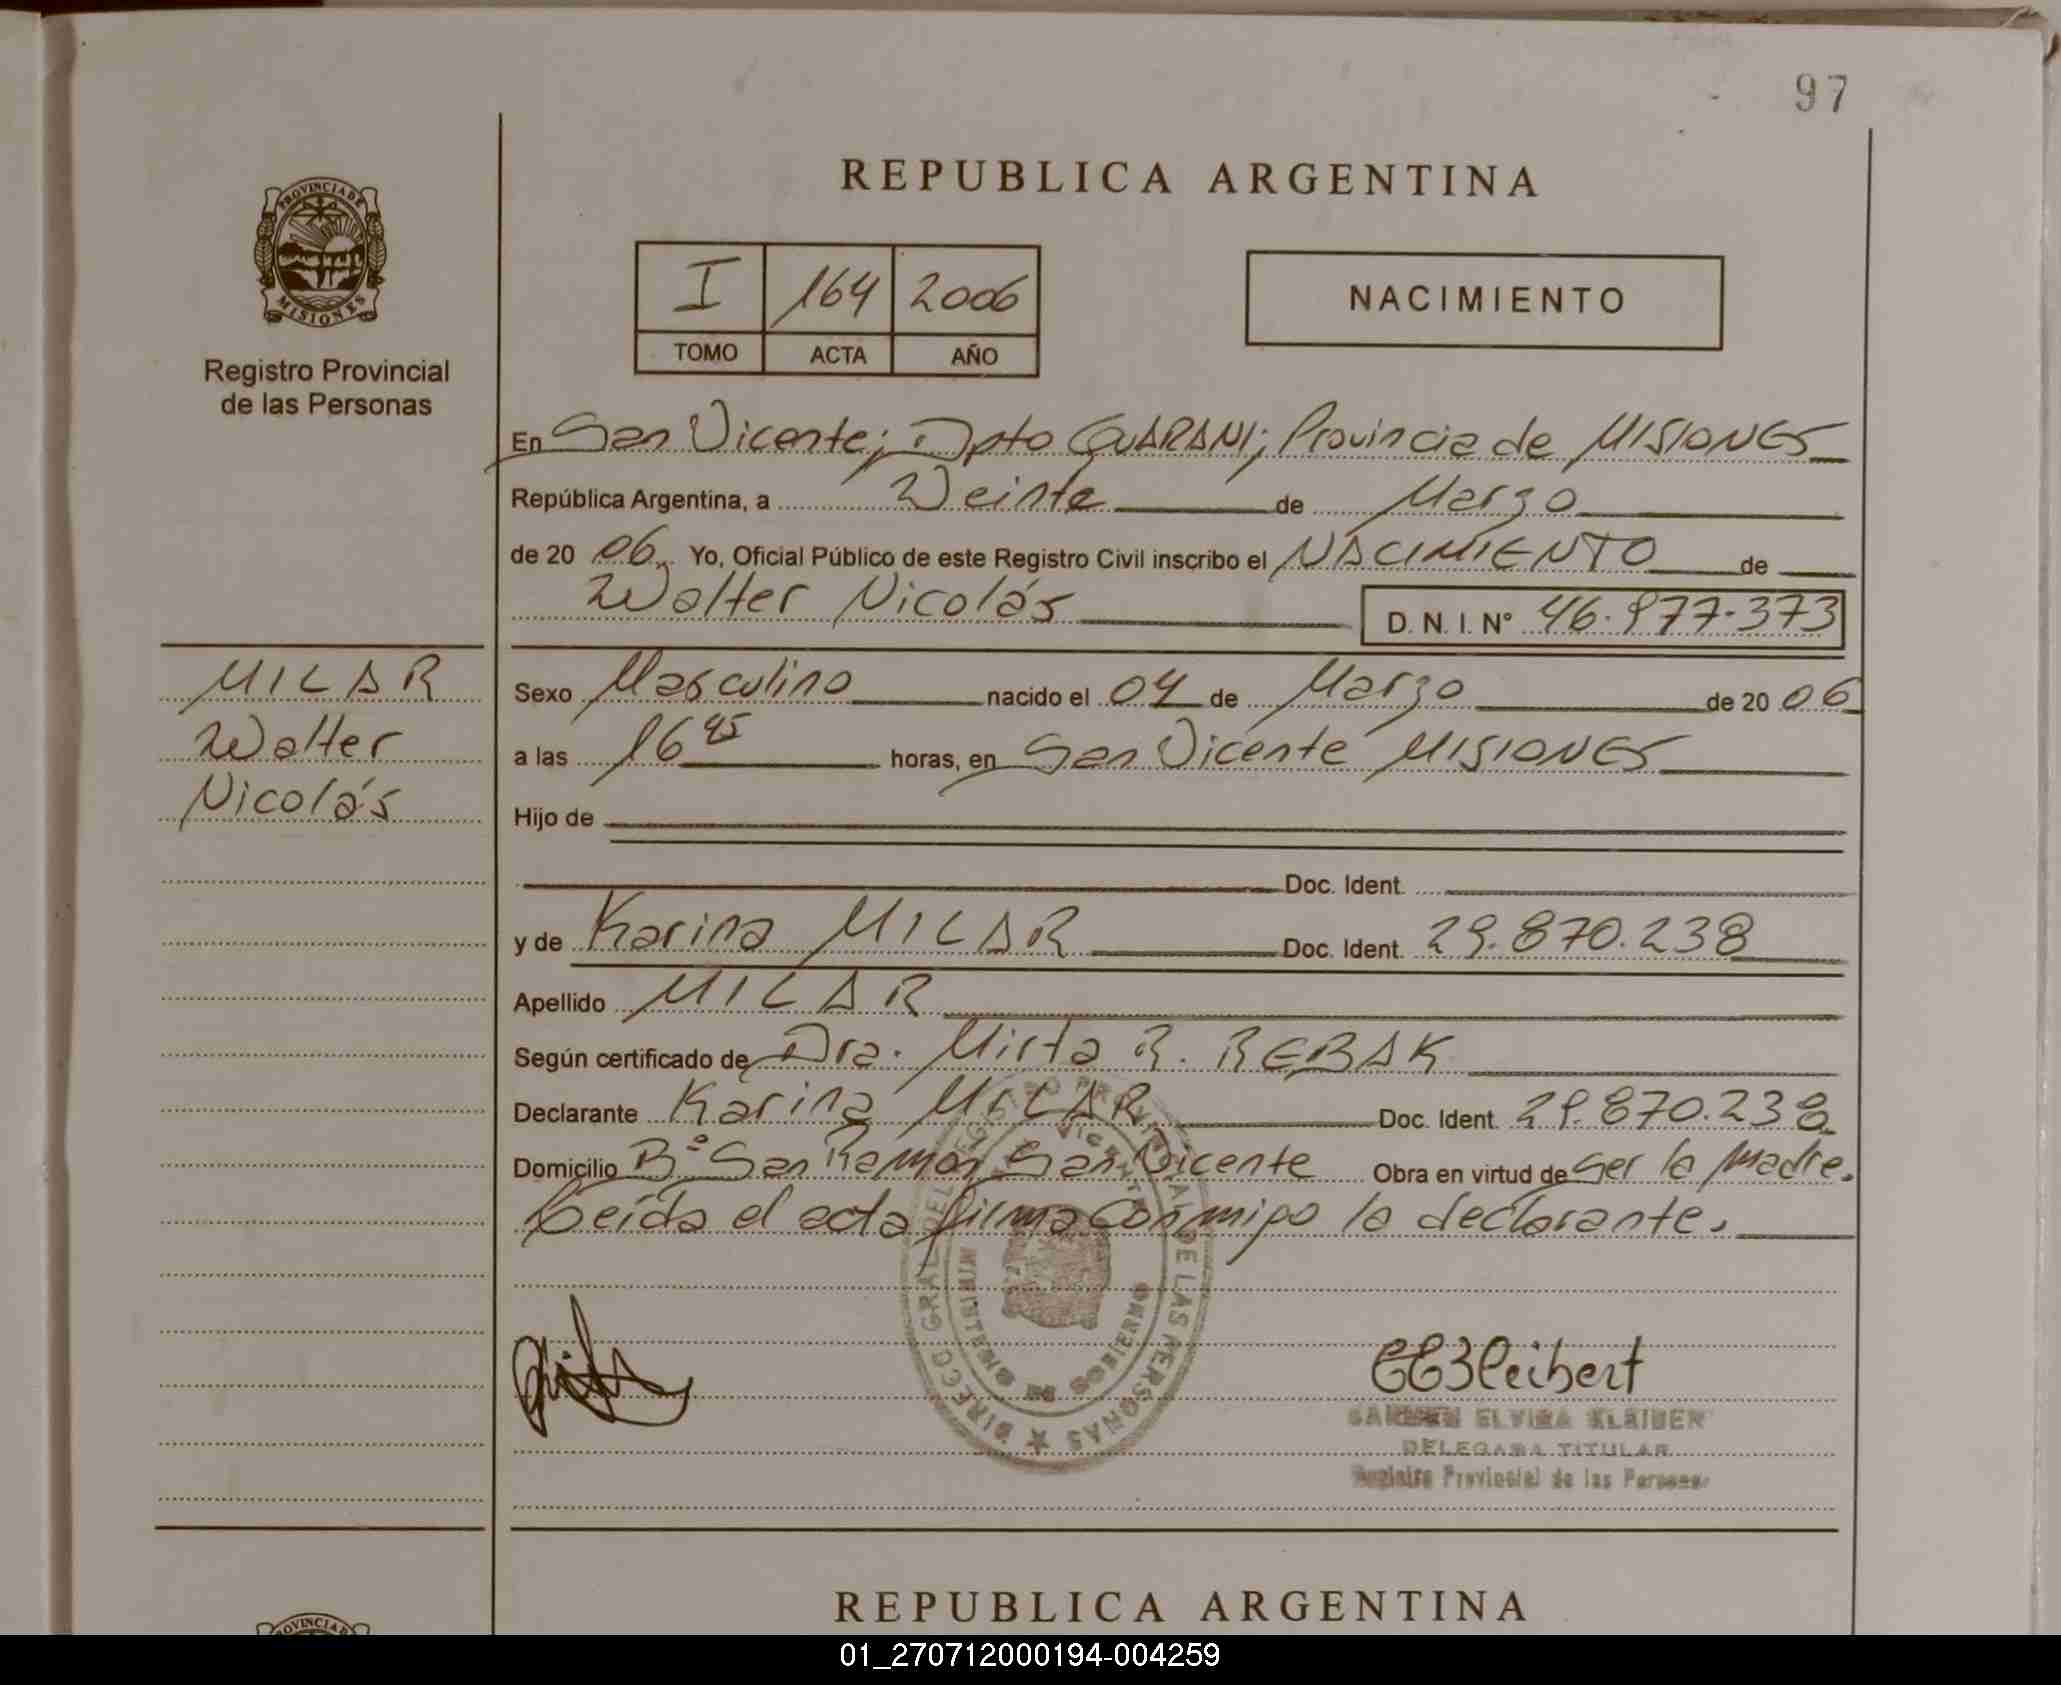 97
PROVINCIA DE
MISIONES
Registro Provincial
de las Personas
REPUBLICA ARGENTINA
I 164 2006
TOMO ACTA AÑO
NACIMIENTO
En San Vicente; Dpto GUARANI; Provincia de MISIONES
República Argentina, a Veinte de Marzo
de 20 06 Yo, Oficial Público de este Registro Civil inscribo el NACIMIENTO de
Walter Nicolás D. N. I. N° 46.977.373
MILAR
Walter
Nicolás
Sexo Masculino nacido el 04 de Marzo de 20 06
a las 16 45 horas, en San Vicente MISIONES
Hijo de
Doc. Ident.
y de Karina MILAR Doc. Ident. 29.870.238
Apellido MILAR
Según certificado de Dra. Mirta R. REBAK
Declarante Karina MILAR Doc. Ident. 29.870.238
Domicilio B° San Ramon San Vicente Obra en virtud de Ser la Madre.
Leída el acta firma Conmigo la declarante.
DIRECC GRAL DEL REGISTRO PROVINCIAL DE LAS PERSONAS
MINISTERIO DE GOBIERNO
CARMEN ELVIRA KLAIBER
DELEGADA TITULAR
Registro Provincial de las Personas
REPUBLICA ARGENTINA
PROVINCIA
01_270712000194-004259